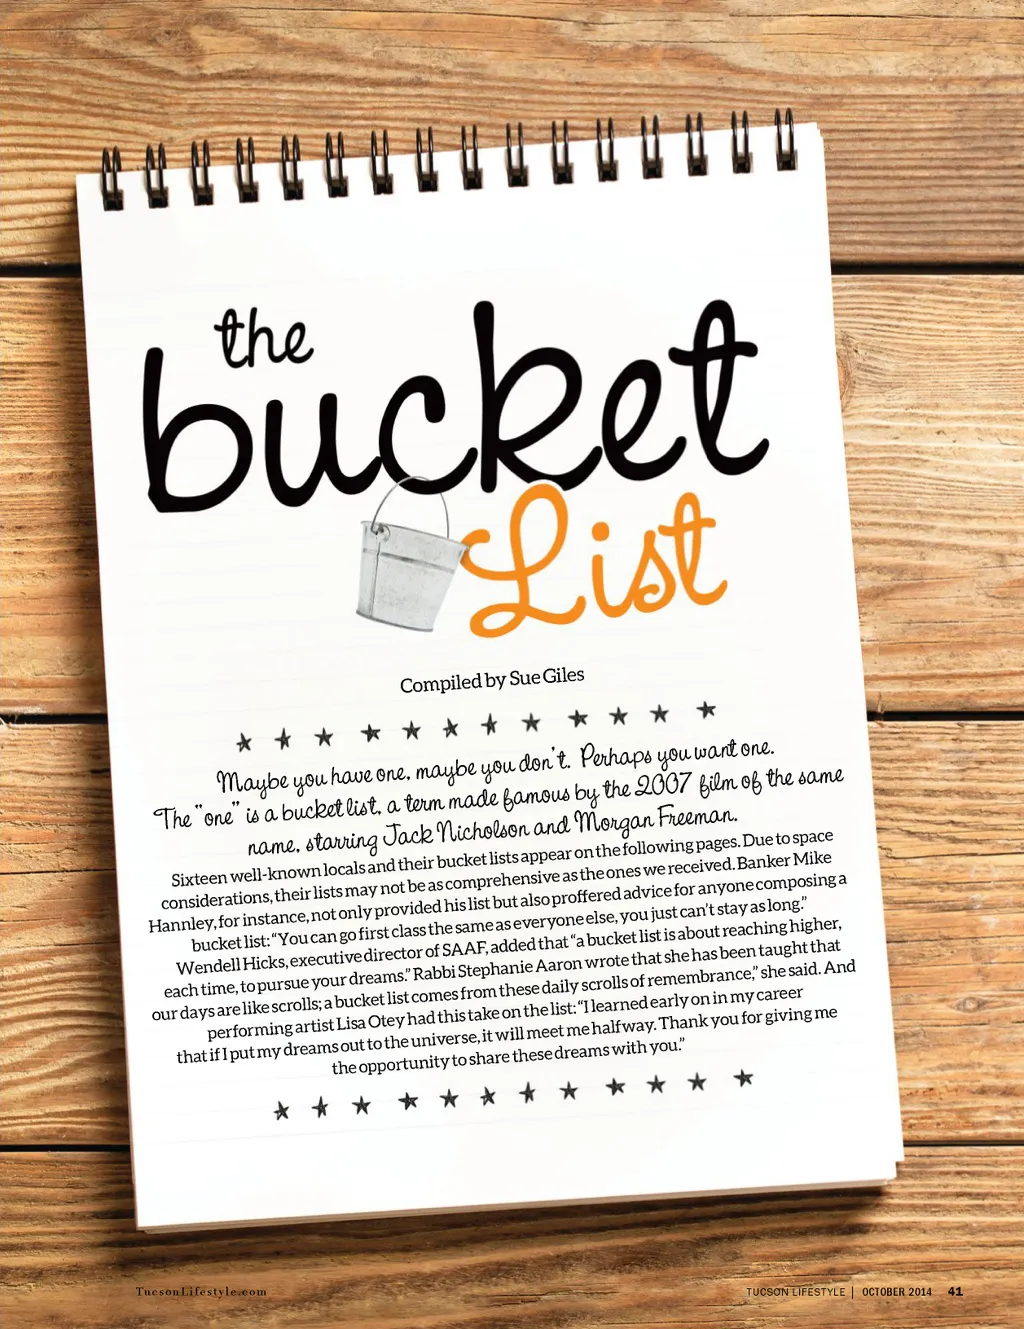 the
bucket
List
Compiled by Sue Giles
Maybe you have one, maybe you don't. Perhaps you want one.
The "one" is a bucket list, a term made famous by the 2007 film of the same
name, starring Jack Nicholson and Morgan Freeman.
Sixteen well-known locals and their bucket lists appear on the following pages. Due to space
considerations, their lists may not be as comprehensive as the ones we received. Banker Mike
Hannley, for instance, not only provided his list but also proffered advice for anyone composing a
bucket list: “You can go first class the same as everyone else, you just can’t stay as long.”
Wendell Hicks, executive director of SAAF, added that “a bucket list is about reaching higher,
each time, to pursue your dreams.” Rabbi Stephanie Aaron wrote that she has been taught that
our days are like scrolls; a bucket list comes from these daily scrolls of remembrance,” she said. And
performing artist Lisa Otey had this take on the list: “I learned early on in my career
that if I put my dreams out to the universe, it will meet me halfway. Thank you for giving me
the opportunity to share these dreams with you.”
TucsonLifestyle.com
TUCSON LIFESTYLE | OCTOBER 2014 41